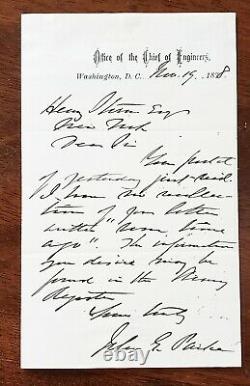 Office of the Chief of Engineers,
Washington, D. C. Nov. 19, 1878.
Henry Esq
New York
Dear Sir
Your postal
of yesterday just recd.
I have no recollec-
tion of your letter
written "some time
ago". The information
you desire may be
found in the Army
Register
Yours truly
John G. Parke